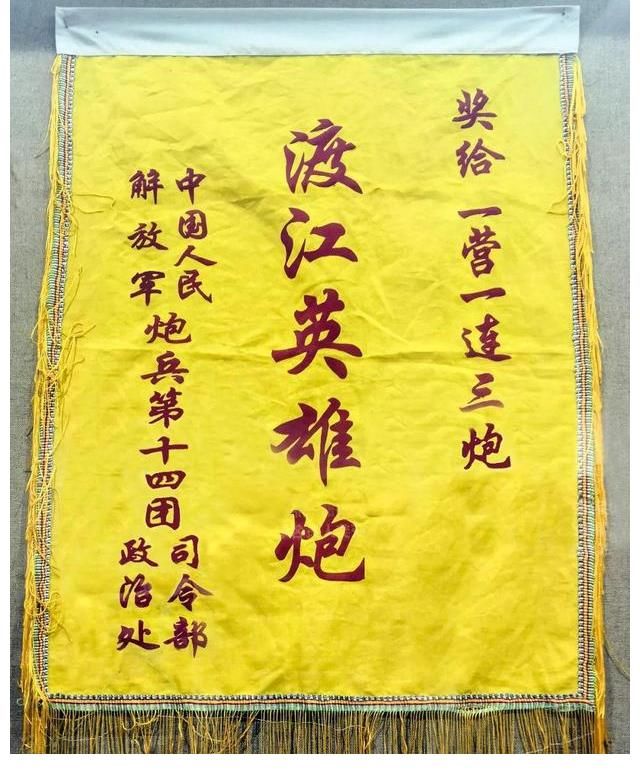 奖给 一营一连三炮
渡江英雄炮
中国人民
解放军
炮兵第十四团
司令部
政治处